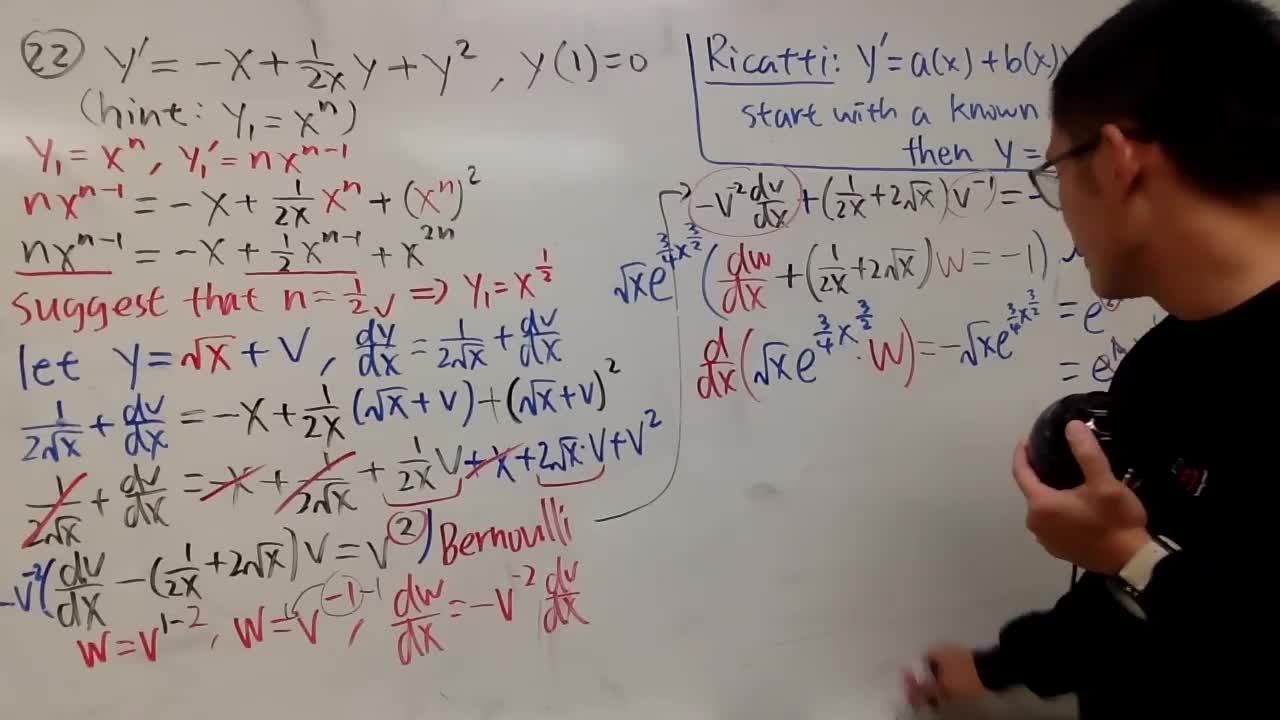 22 y' = -x + 1/2x y + y², y(1)=0
(hint: y₁ = xⁿ)
y₁ = xⁿ, y₁' = nxⁿ⁻¹
nxⁿ⁻¹ = -x + 1/2x xⁿ + (xⁿ)²
nxⁿ⁻¹ = -x + 1/2 xⁿ⁻¹ + x²ⁿ
suggest that n = 1/2 ✓ ⇒ y₁ = x^(1/2)
let y = √x + v, dy/dx = 1/2√x + dv/dx
1/2√x + dv/dx = -x + 1/2x (√x + v) + (√x + v)²
1/2√x + dv/dx = -x + 1/2√x + 1/2x v + x + 2√x·v + v²
-v⁻²(dv/dx - (1/2x + 2√x)v = v²) Bernoulli
w = v¹⁻², w = v⁻¹, dw/dx = -v⁻² dv/dx
Ricatti: y' = a(x) + b(x)
start with a known
then y =
-v⁻² dv/dx + (1/2x + 2√x)v⁻¹ = -
√x e^(3/4 x^(3/2)) (dw/dx + (1/2x + 2√x)w = -1)
= e
d/dx(√x e^(3/4 x^(3/2)) · w) = -√x e^(3/4 x^(3/2))
= e